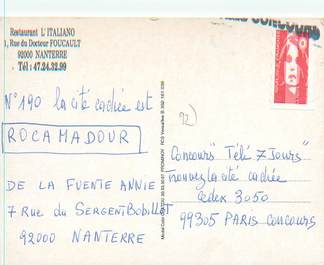 Restaurant L'ITALIANO
1, Rue du Docteur FOUCAULT
92000 NANTERRE
Tél : 47.24.32.99
N° 190 la cité cachée est
ROCAMADOUR
DE LA FUENTE ANNIE
7 Rue du SERGENT Bobillot
92000 NANTERRE
CONCOURS
92)
Concours "Télé 7 Jours"
trouvez la cité cachée
Cedex 3050
99305 PARIS Concours